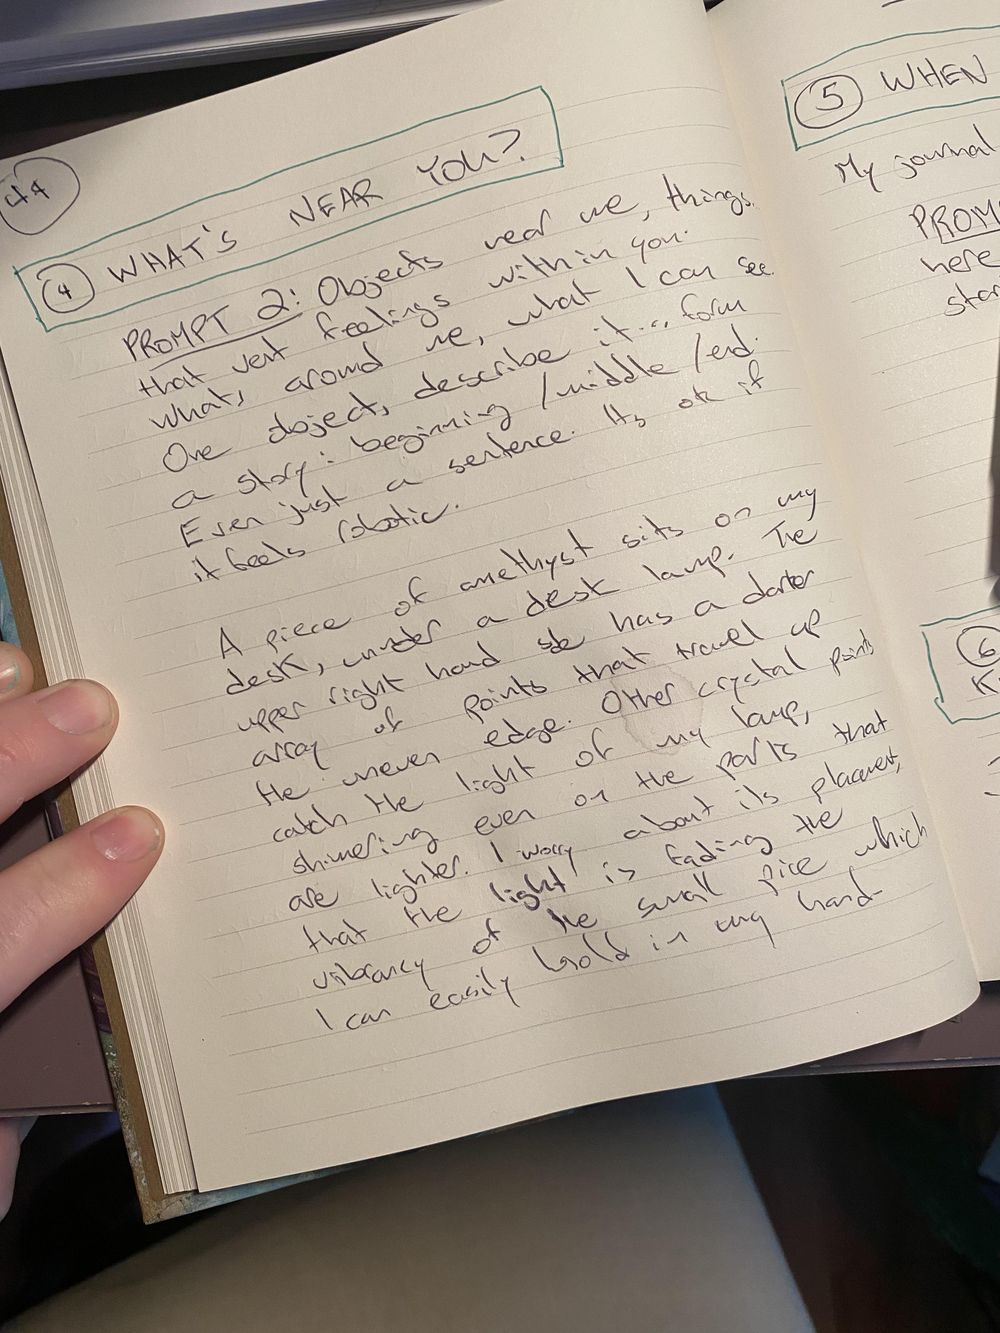 44
4 WHAT'S NEAR YOU?
PROMPT 2: Objects near me, things
that vent feelings within you.
Whats around me, what I can see.
One object, describe it... form
a story: beginning / middle / end.
Even just a sentence. Its ok if
it feels robotic.
A piece of amethyst sits on my
desk, under a desk lamp. The
upper right hand side has a darker
array of points that travel up
the uneven edge. Other crystal points
catch the light of my lamp,
shimering even on the parts that
are lighter. I worry about its placement,
that the light is fading the
vibrancy of the small piece which
I can easily hold in my hand.
5 WHEN
My journal
PROM
here
stor
6
K